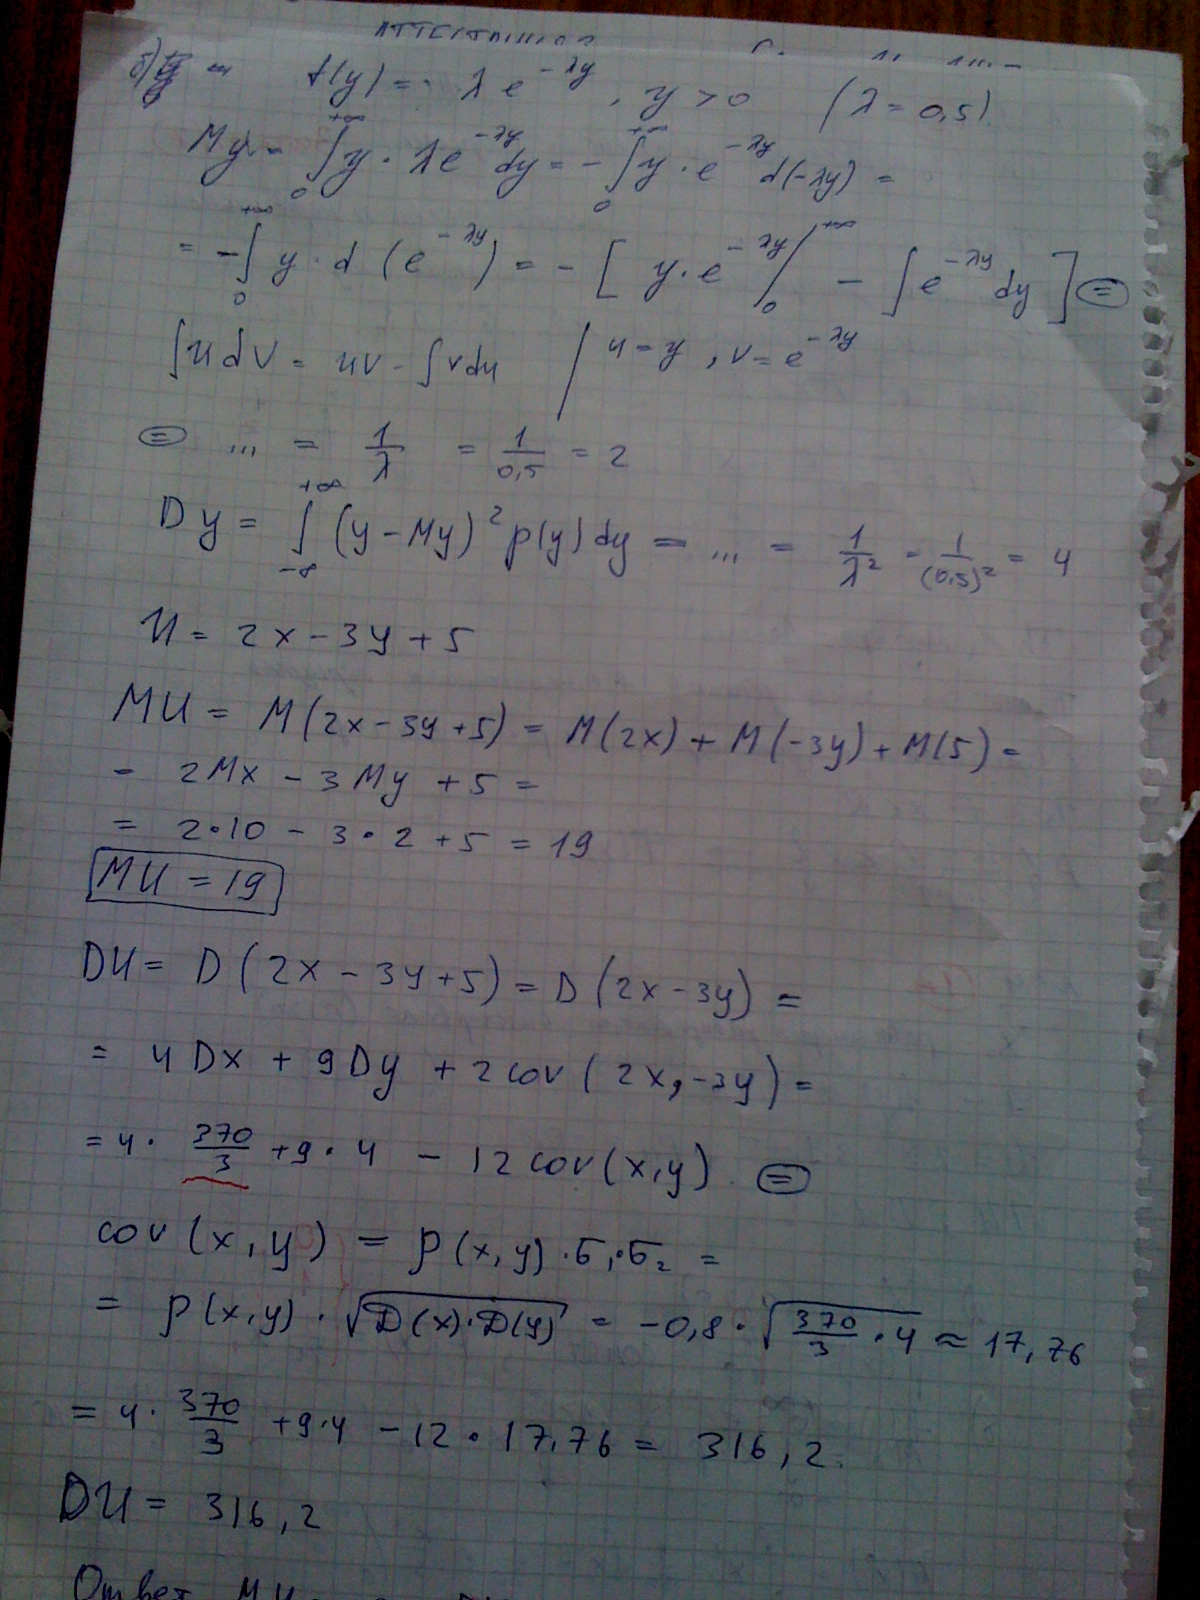 б) f(y) = λe^{-λy}, y > 0 (λ = 0,5)
My = ∫_0^{+∞} y · λe^{-λy} dy = - ∫_0^{+∞} y · e^{-λy} d(-λy) =
= - ∫_0^{+∞} y · d (e^{-λy}) = - [ y · e^{-λy} |_0^{+∞} - ∫ e^{-λy} dy ] ⊜
∫ u dv = uv - ∫ v du | u = y, v = e^{-λy}
⊜ ... = 1/λ = 1/0,5 = 2
Dy = ∫_{-∞}^{+∞} (y - My)^2 p(y) dy = ... = 1/λ^2 = 1/(0,5)^2 = 4
U = 2x - 3y + 5
MU = M(2x - 3y + 5) = M(2x) + M(-3y) + M(5) =
= 2Mx - 3My + 5 =
= 2·10 - 3·2 + 5 = 19
MU = 19
DU = D(2x - 3y + 5) = D(2x - 3y) =
= 4Dx + 9Dy + 2cov(2x, -3y) =
= 4 · 370/3 + 9·4 - 12cov(x,y) ⊜
cov(x,y) = ρ(x,y) · σ₁·σ₂ =
= ρ(x,y) · √(D(x)·D(y)) = -0,8 · √(370/3 · 4) ≈ 17,76
= 4 · 370/3 + 9·4 - 12 · 17,76 = 316,2.
DU = 316,2
Ответ